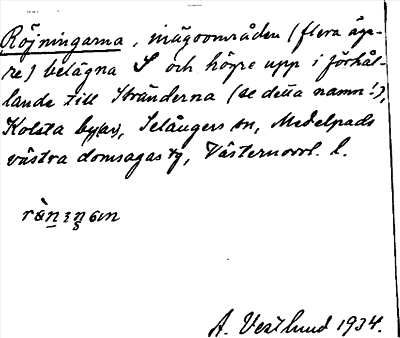 Röjningarna, inägoområden (flera äg-
re) belägna S och högre upp i förhål-
lande till Stränderna (se detta namn!),
Kolsta by(ar), Selångers sn, Medelpads
västra domsagas tg, Västernorrl. l.
A. Vestlund 1934.